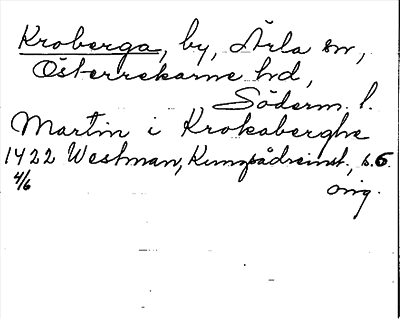 Kroberga, by, Ärla sn,
Österrekarne hd,
Söderm. l.
Martin i Krokaberghe
1422 Westman, Kungsådreinst., s. 6.
4/6 orig.